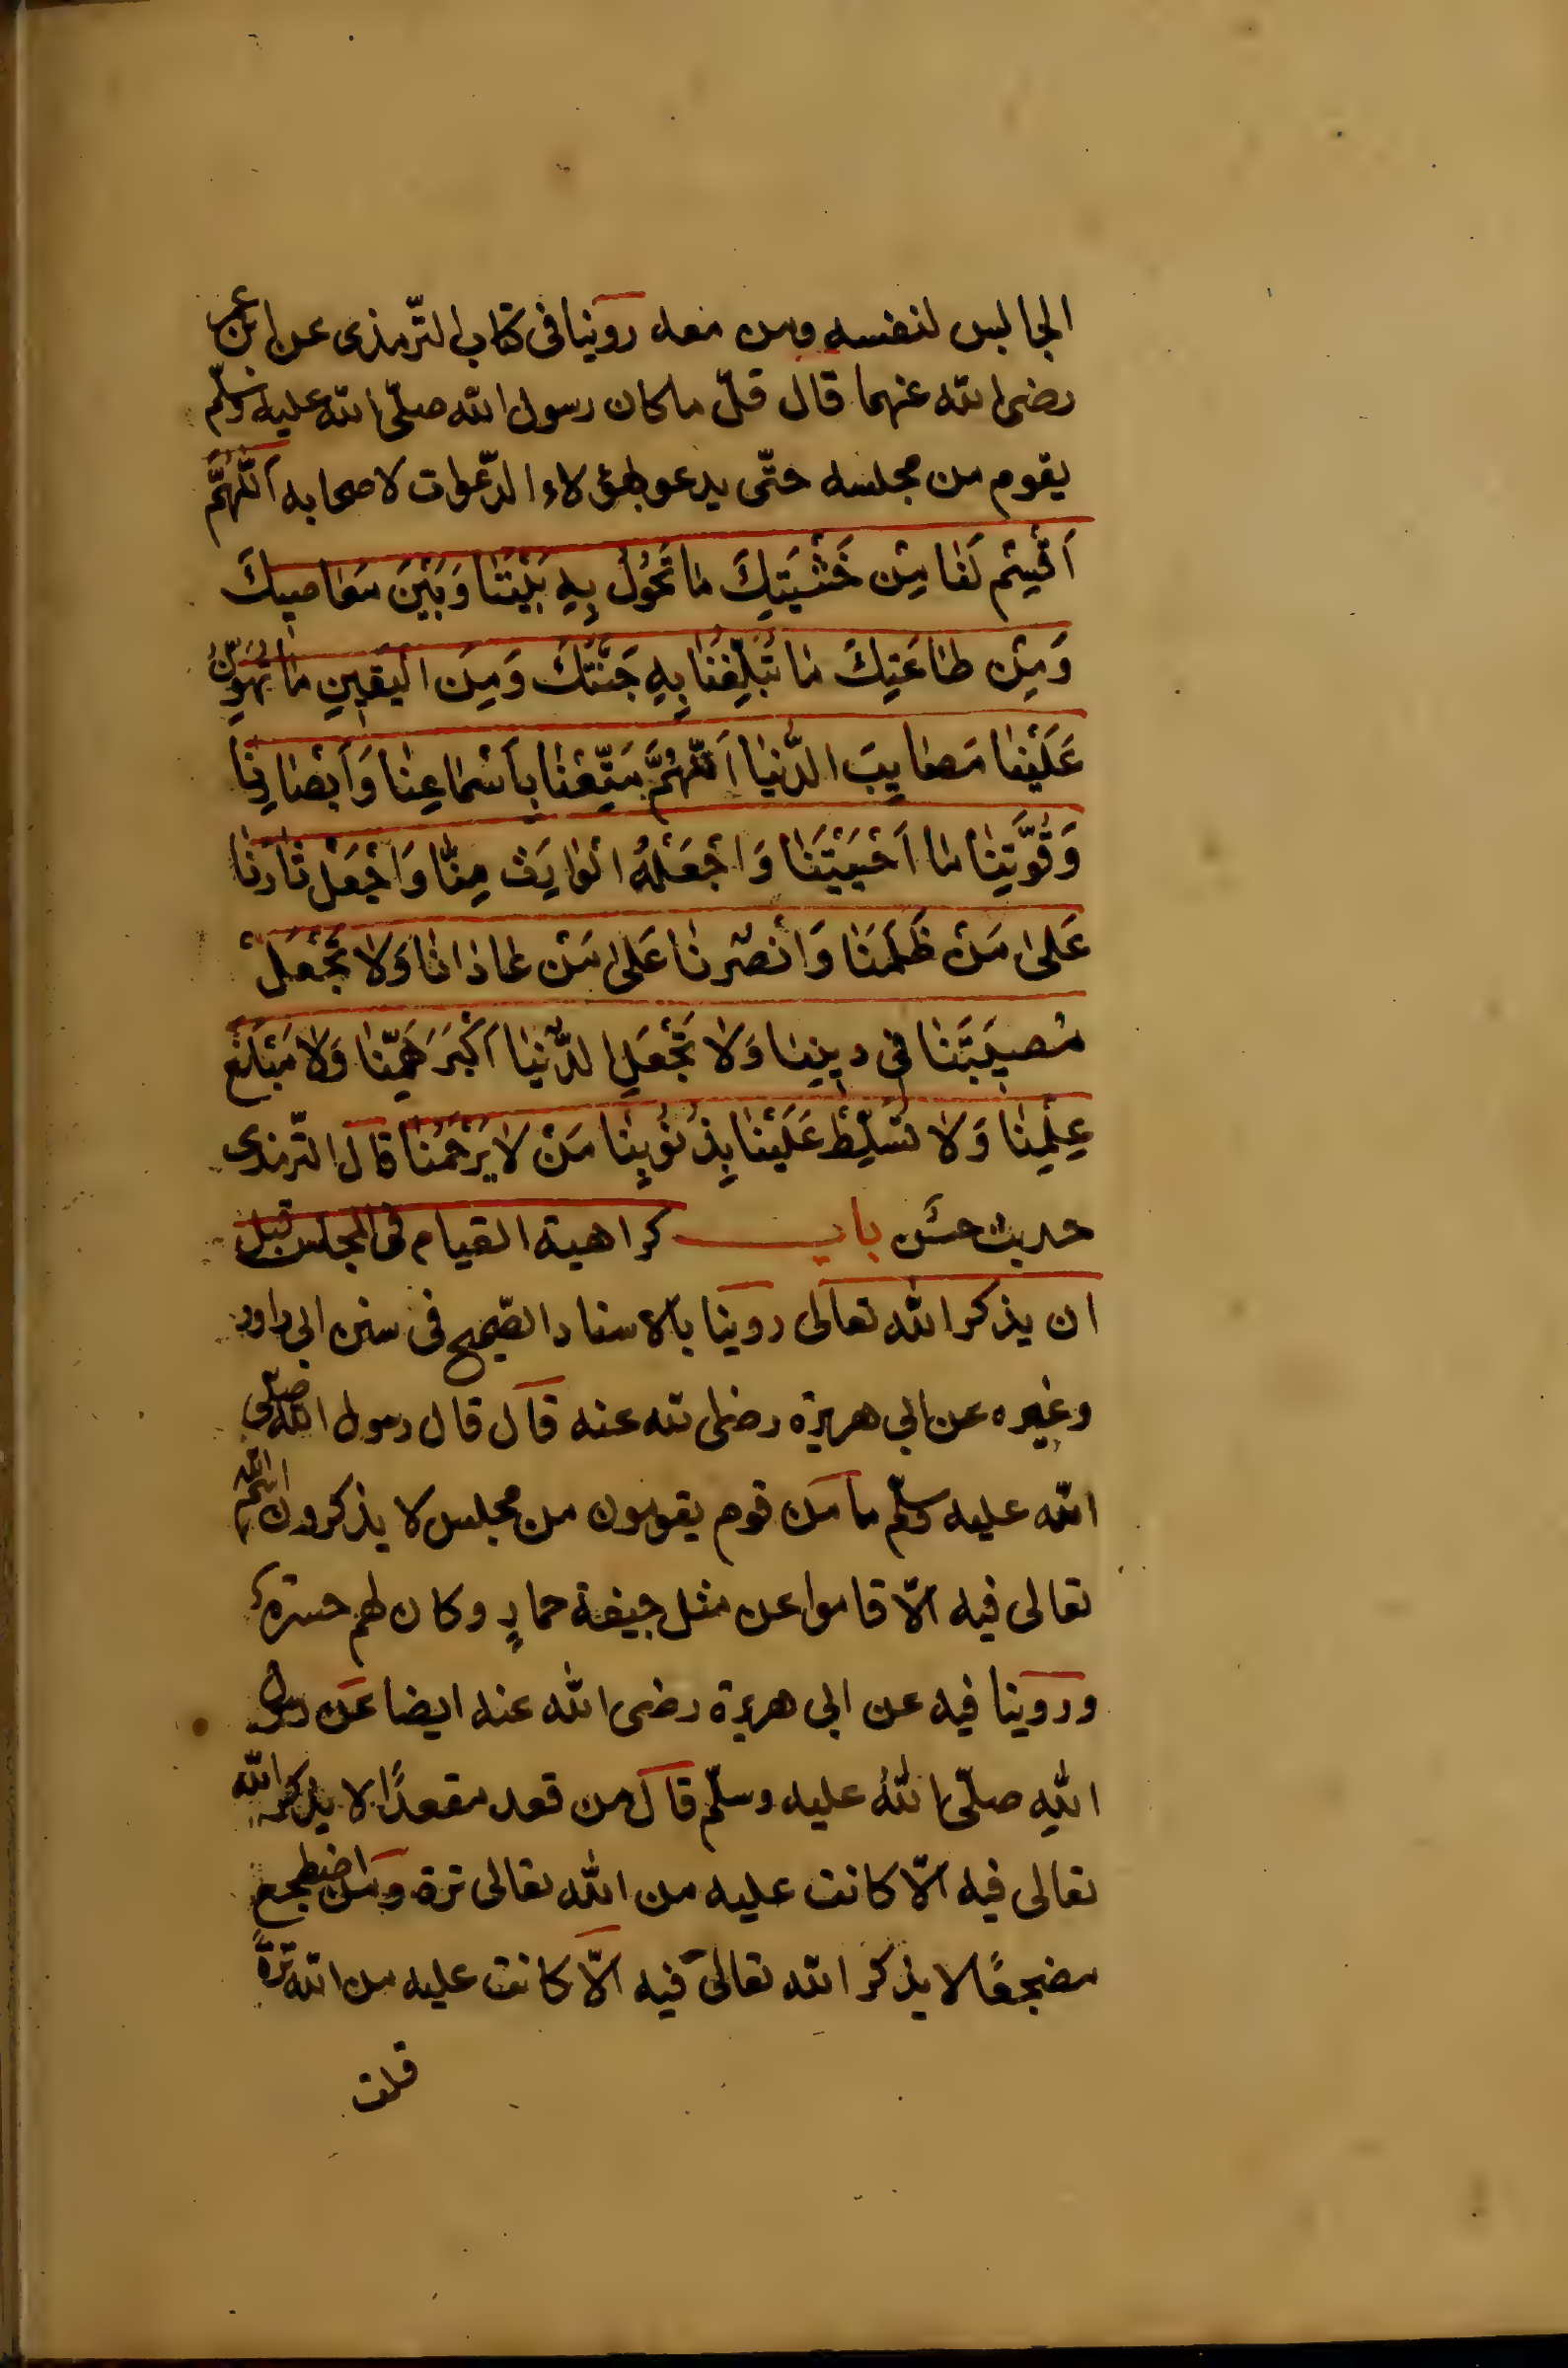 الجالس لنفسه ومن معه روينا فى كتاب الترّمذى عن ابن عمر
رضى الله عنهما قال قلّ ما كان رسول الله صلّى الله عليه وسلّم
يقوم من مجلسه حتّى يدعو بهؤلاء الدّعوات لاصحابه اَللّٰهُمَّ
اَقْسِمْ لَنٰا مِنْ خَشْيَتِكَ مٰا تَحُوْلُ بِهِ بَيْنَنٰا وَبَيْنَ مَعٰاصِيكَ
وَمِنْ طٰاعَتِكَ مٰا تُبَلِّغُنٰا بِهِ جَنَّتَكَ وَمِنَ الْيَقِينِ مٰا تُهَوِّنُ
عَلَيْنٰا مَصٰايِبَ الدُّنْيٰا اَللّٰهُمَّ مَتِّعْنٰا بِاَسْمٰاعِنٰا وَاَبْصٰارِنٰا
وَقُوَّتِنٰا مٰا اَحْيَيْتَنٰا وَاجْعَلْهُ الْوٰارِثَ مِنّٰا وَاجْعَلْ ثٰارَنٰا
عَلىٰ مَنْ ظَلَمَنٰا وَانْصُرْنٰا عَلىٰ مَنْ عٰادٰانٰا وَلٰا تَجْعَلْ
مُصِيبَتَنٰا فِى دِينِنٰا وَلٰا تَجْعَلِ الدُّنْيٰا اَكْبَرَ هَمِّنٰا وَلٰا مَبْلَغَ
عِلْمِنٰا وَلٰا تُسَلِّطْ عَلَيْنٰا بِذُنُوبِنٰا مَنْ لٰا يَرْحَمُنٰا قال الترّمذى
حديث حسَن باب كراهية القيام فى المجلس قبل
ان يذكر الله تعالى روينا بالاسناد الصّحيح فى سنن ابى داود
وغيره عن ابى هريرة رضى الله عنه قال قال رسول الله صلّى
الله عليه وسلّم ما من قوم يقومون من مجلس لا يذكرون اسم الله
تعالى فيه الّا قاموا عن مثل جيفة حمارٍ وكان لهم حسرة
وروينا فيه عن ابى هريرة رضى الله عنه ايضا عن رسول
اللهِ صلّى اللهُ عليه وسلّم قال من قعد مقعدًا لا يذكر الله
تعالى فيه الّا كانت عليه من الله تعالى ترة ومن اضطجع
مضجعًا لا يذكر الله تعالى فيه الّا كانت عليه من الله ترةً
قلت